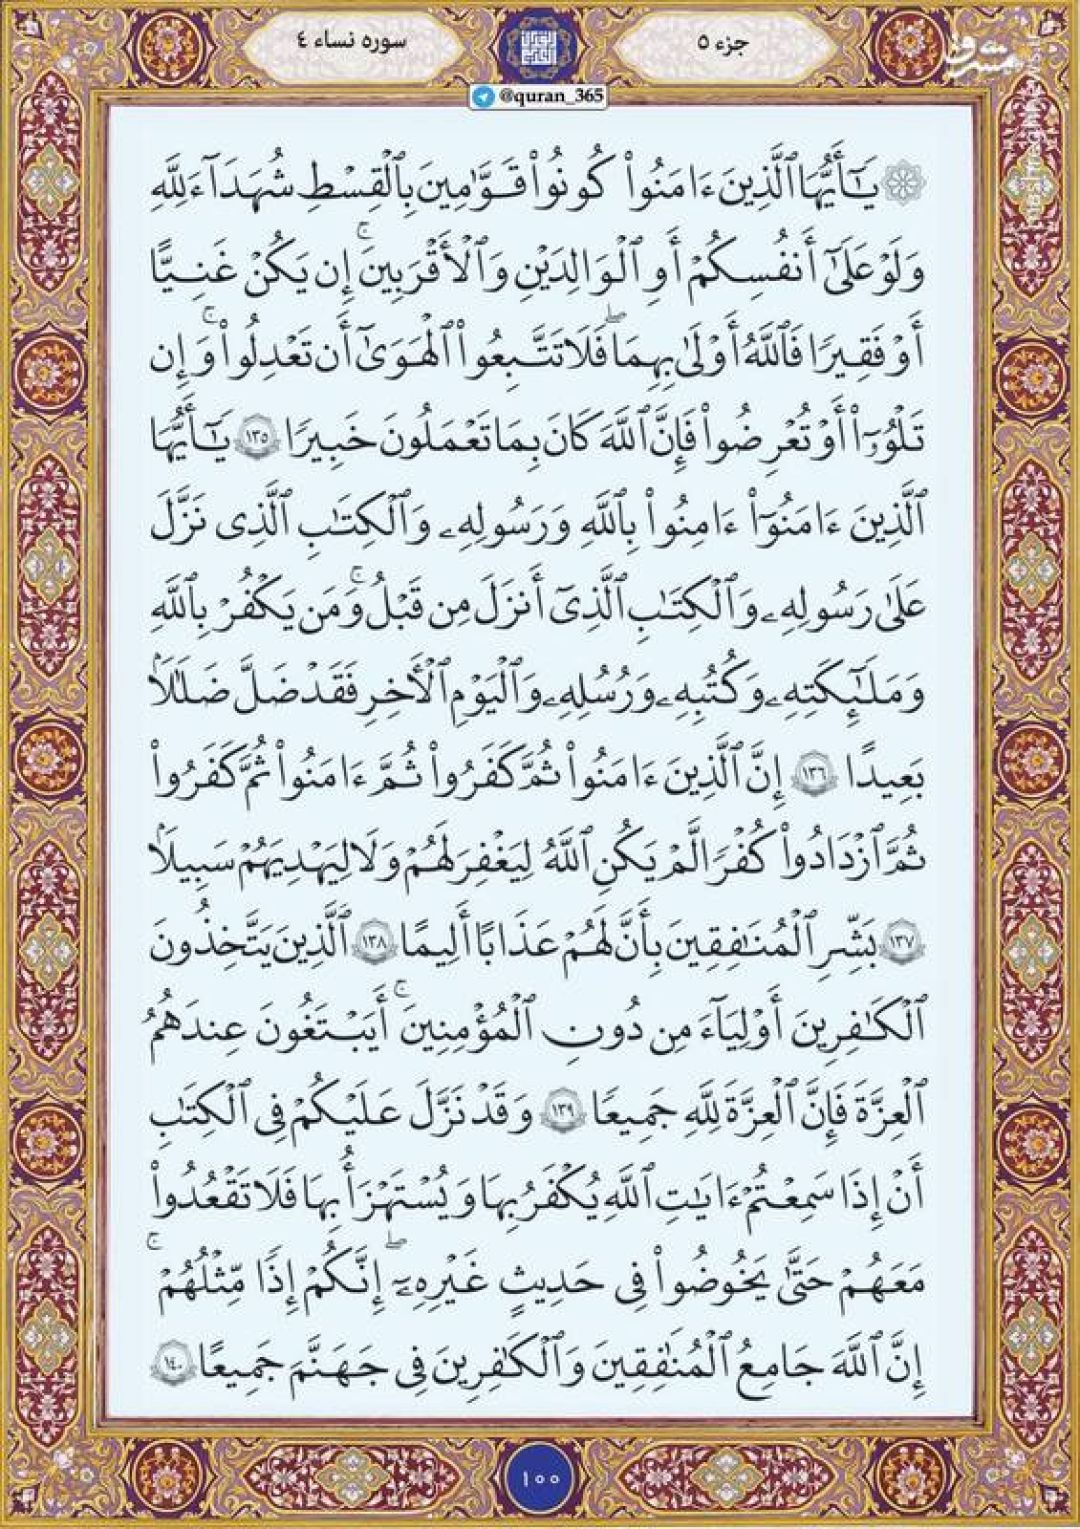 جزء ۵
سوره نساء ٤
مشرق
@quran_365
۞ يَٰٓأَيُّهَا ٱلَّذِينَ ءَامَنُوا۟ كُونُوا۟ قَوَّٰمِينَ بِٱلْقِسْطِ شُهَدَآءَ لِلَّهِ
وَلَوْ عَلَىٰٓ أَنفُسِكُمْ أَوِ ٱلْوَٰلِدَيْنِ وَٱلْأَقْرَبِينَ ۚ إِن يَكُنْ غَنِيًّا
أَوْ فَقِيرًا فَٱللَّهُ أَوْلَىٰ بِهِمَا ۖ فَلَا تَتَّبِعُوا۟ ٱلْهَوَىٰٓ أَن تَعْدِلُوا۟ ۚ وَإِن
تَلْوُۥٓا۟ أَوْ تُعْرِضُوا۟ فَإِنَّ ٱللَّهَ كَانَ بِمَا تَعْمَلُونَ خَبِيرًا ١٣٥ يَٰٓأَيُّهَا
ٱلَّذِينَ ءَامَنُوٓا۟ ءَامِنُوا۟ بِٱللَّهِ وَرَسُولِهِۦ وَٱلْكِتَٰبِ ٱلَّذِى نَزَّلَ
عَلَىٰ رَسُولِهِۦ وَٱلْكِتَٰبِ ٱلَّذِىٓ أَنزَلَ مِن قَبْلُ ۚ وَمَن يَكْفُرْ بِٱللَّهِ
وَمَلَٰٓئِكَتِهِۦ وَكُتُبِهِۦ وَرُسُلِهِۦ وَٱلْيَوْمِ ٱلْأَخِرِ فَقَدْ ضَلَّ ضَلَٰلًۢا
بَعِيدًا ١٣٦ إِنَّ ٱلَّذِينَ ءَامَنُوا۟ ثُمَّ كَفَرُوا۟ ثُمَّ ءَامَنُوا۟ ثُمَّ كَفَرُوا۟
ثُمَّ ٱزْدَادُوا۟ كُفْرًا لَّمْ يَكُنِ ٱللَّهُ لِيَغْفِرَ لَهُمْ وَلَا لِيَهْدِيَهُمْ سَبِيلًۢا
١٣٧ بَشِّرِ ٱلْمُنَٰفِقِينَ بِأَنَّ لَهُمْ عَذَابًا أَلِيمًا ١٣٨ ٱلَّذِينَ يَتَّخِذُونَ
ٱلْكَٰفِرِينَ أَوْلِيَآءَ مِن دُونِ ٱلْمُؤْمِنِينَ ۚ أَيَبْتَغُونَ عِندَهُمُ
ٱلْعِزَّةَ فَإِنَّ ٱلْعِزَّةَ لِلَّهِ جَمِيعًا ١٣٩ وَقَدْ نَزَّلَ عَلَيْكُمْ فِى ٱلْكِتَٰبِ
أَنْ إِذَا سَمِعْتُمْ ءَايَٰتِ ٱللَّهِ يُكْفَرُ بِهَا وَيُسْتَهْزَأُ بِهَا فَلَا تَقْعُدُوا۟
مَعَهُمْ حَتَّىٰ يَخُوضُوا۟ فِى حَدِيثٍ غَيْرِهِۦٓ ۖ إِنَّكُمْ إِذًا مِّثْلُهُمْ ۚ
إِنَّ ٱللَّهَ جَامِعُ ٱلْمُنَٰفِقِينَ وَٱلْكَٰفِرِينَ فِى جَهَنَّمَ جَمِيعًا ١٤٠
١٠٠